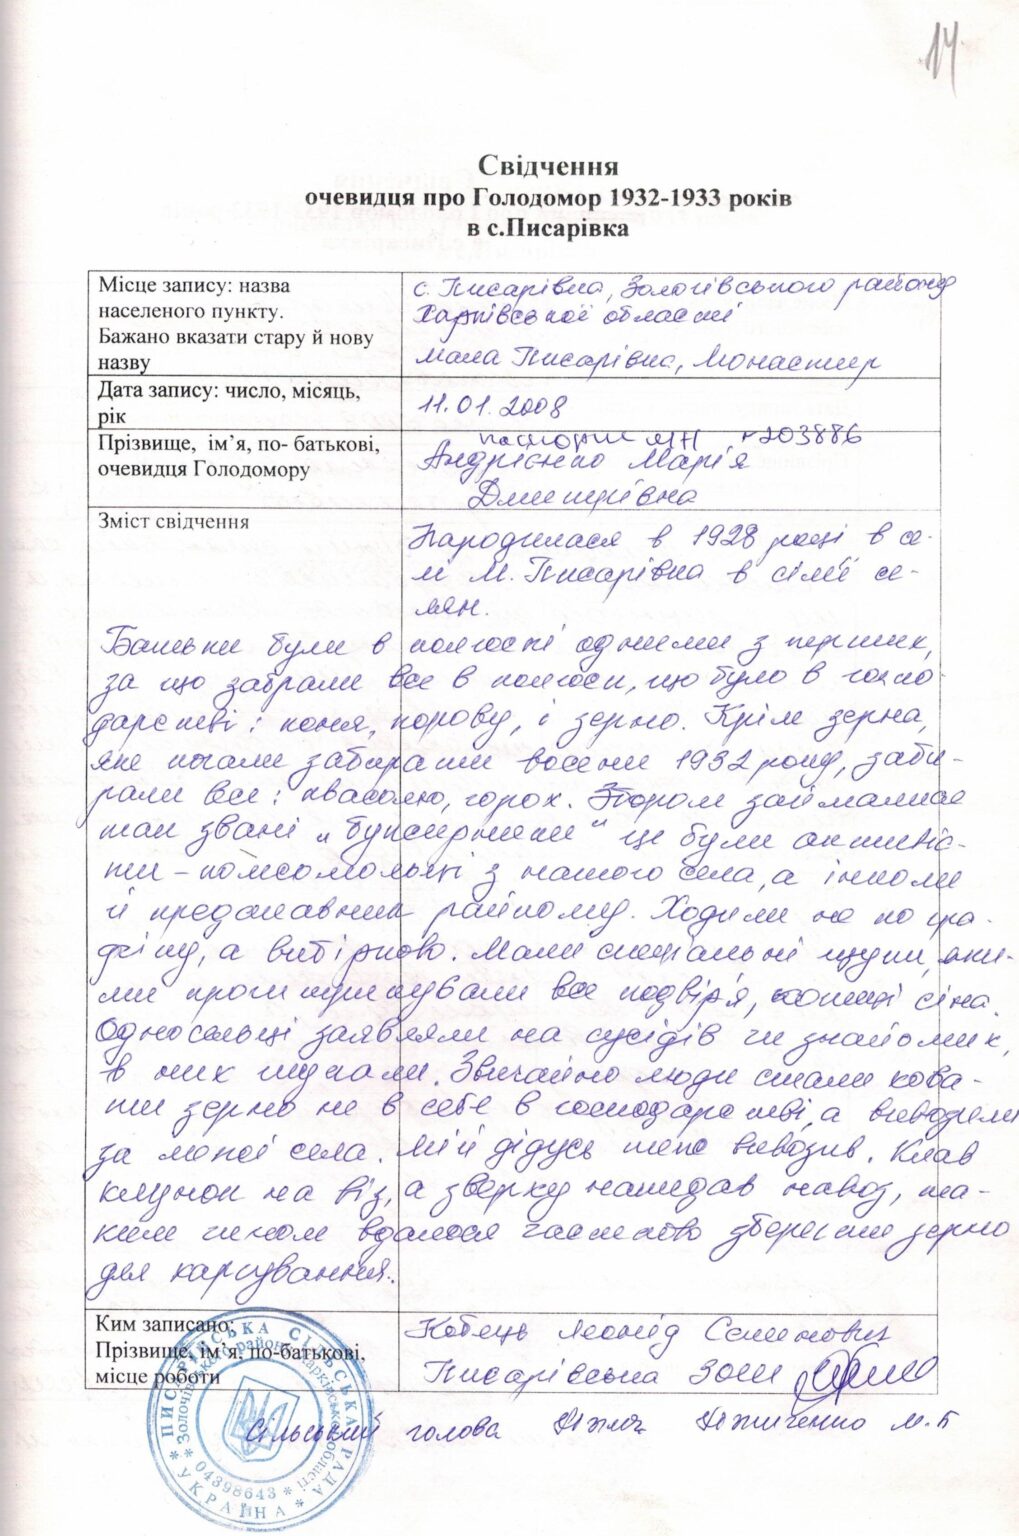 14
Свідчення
очевидця про Голодомор 1932-1933 років
в с.Писарівка
Місце запису: назва
населеного пункту.
Бажано вказати стару й нову
назву
с. Писарівка, Золочівського району
Харківської області
мала Писарівка, Монастир
Дата запису: число, місяць,
рік
11.01.2008
Прізвище, ім’я, по- батькові,
очевидця Голодомору
паспорт МН №203886
Андрієнко Марія
Дмитрівна
Зміст свідчення
Народилася в 1928 році в се-
лі М. Писарівка в сім'ї се-
лян.
Батьки були в колгоспі одними з перших,
за що забрали все в колгосп, що було в госпо-
дарстві: коня, корову, і зерно. Крім зерна,
яке почали забирати восени 1932 року, заби-
рали все: квасолю, горох. Збором займалися
так звані „буксирники" це були активіс-
ти - комсомольці з нашого села, а інколи
й представник райкому. Ходили не по гра-
фіку, а вибірково. Мали спеціальні щупи, яки-
ми проштрикували все подвір'я, копиці сіна.
Односельці заявляли на сусідів чи знайомих,
в них шукали. Звичайно люди стали хова-
ти зерно не в себе в господарстві, а вивозили
за межі села. Мій дідусь теж вивозив. Клав
клунок на віз, а зверху накидав навоз, та-
ким чином вдалося частково зберегти зерно
для харчування.
Ким записано:
Прізвище, ім’я, по-батькові,
місце роботи
Кобець Леонід Семенович
Писарівська ЗОШ
Сільський голова М. Б
ПИСАРІВСЬКА СІЛЬСЬКА РАДА * УКРАЇНА *
Золочівського району Харківської області * 04398643 *